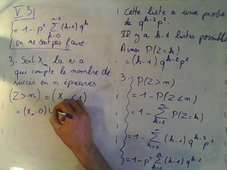 V 5)
= 1 - p² Σ (k-1) q^k
k=0
on ne sait pas faire
3. Soit Xm la v a
qui compte le nombre de
succès en n épreuves
(Z > m) = (Xm ≤ 1)
= (Xm = 0) ∪
1 Cette liste a une proba
de q^(k-2) p².
Il y a k-1 listes possibles
Ainsi P(Z = k)
= (k-1) p² q^(k-2)
3. P(Z > m)
= 1 - P(Z ≤ m)
= 1 - Σ P(Z = k)
k=2
= 1 - Σ (k-1) q^(k-2) p²